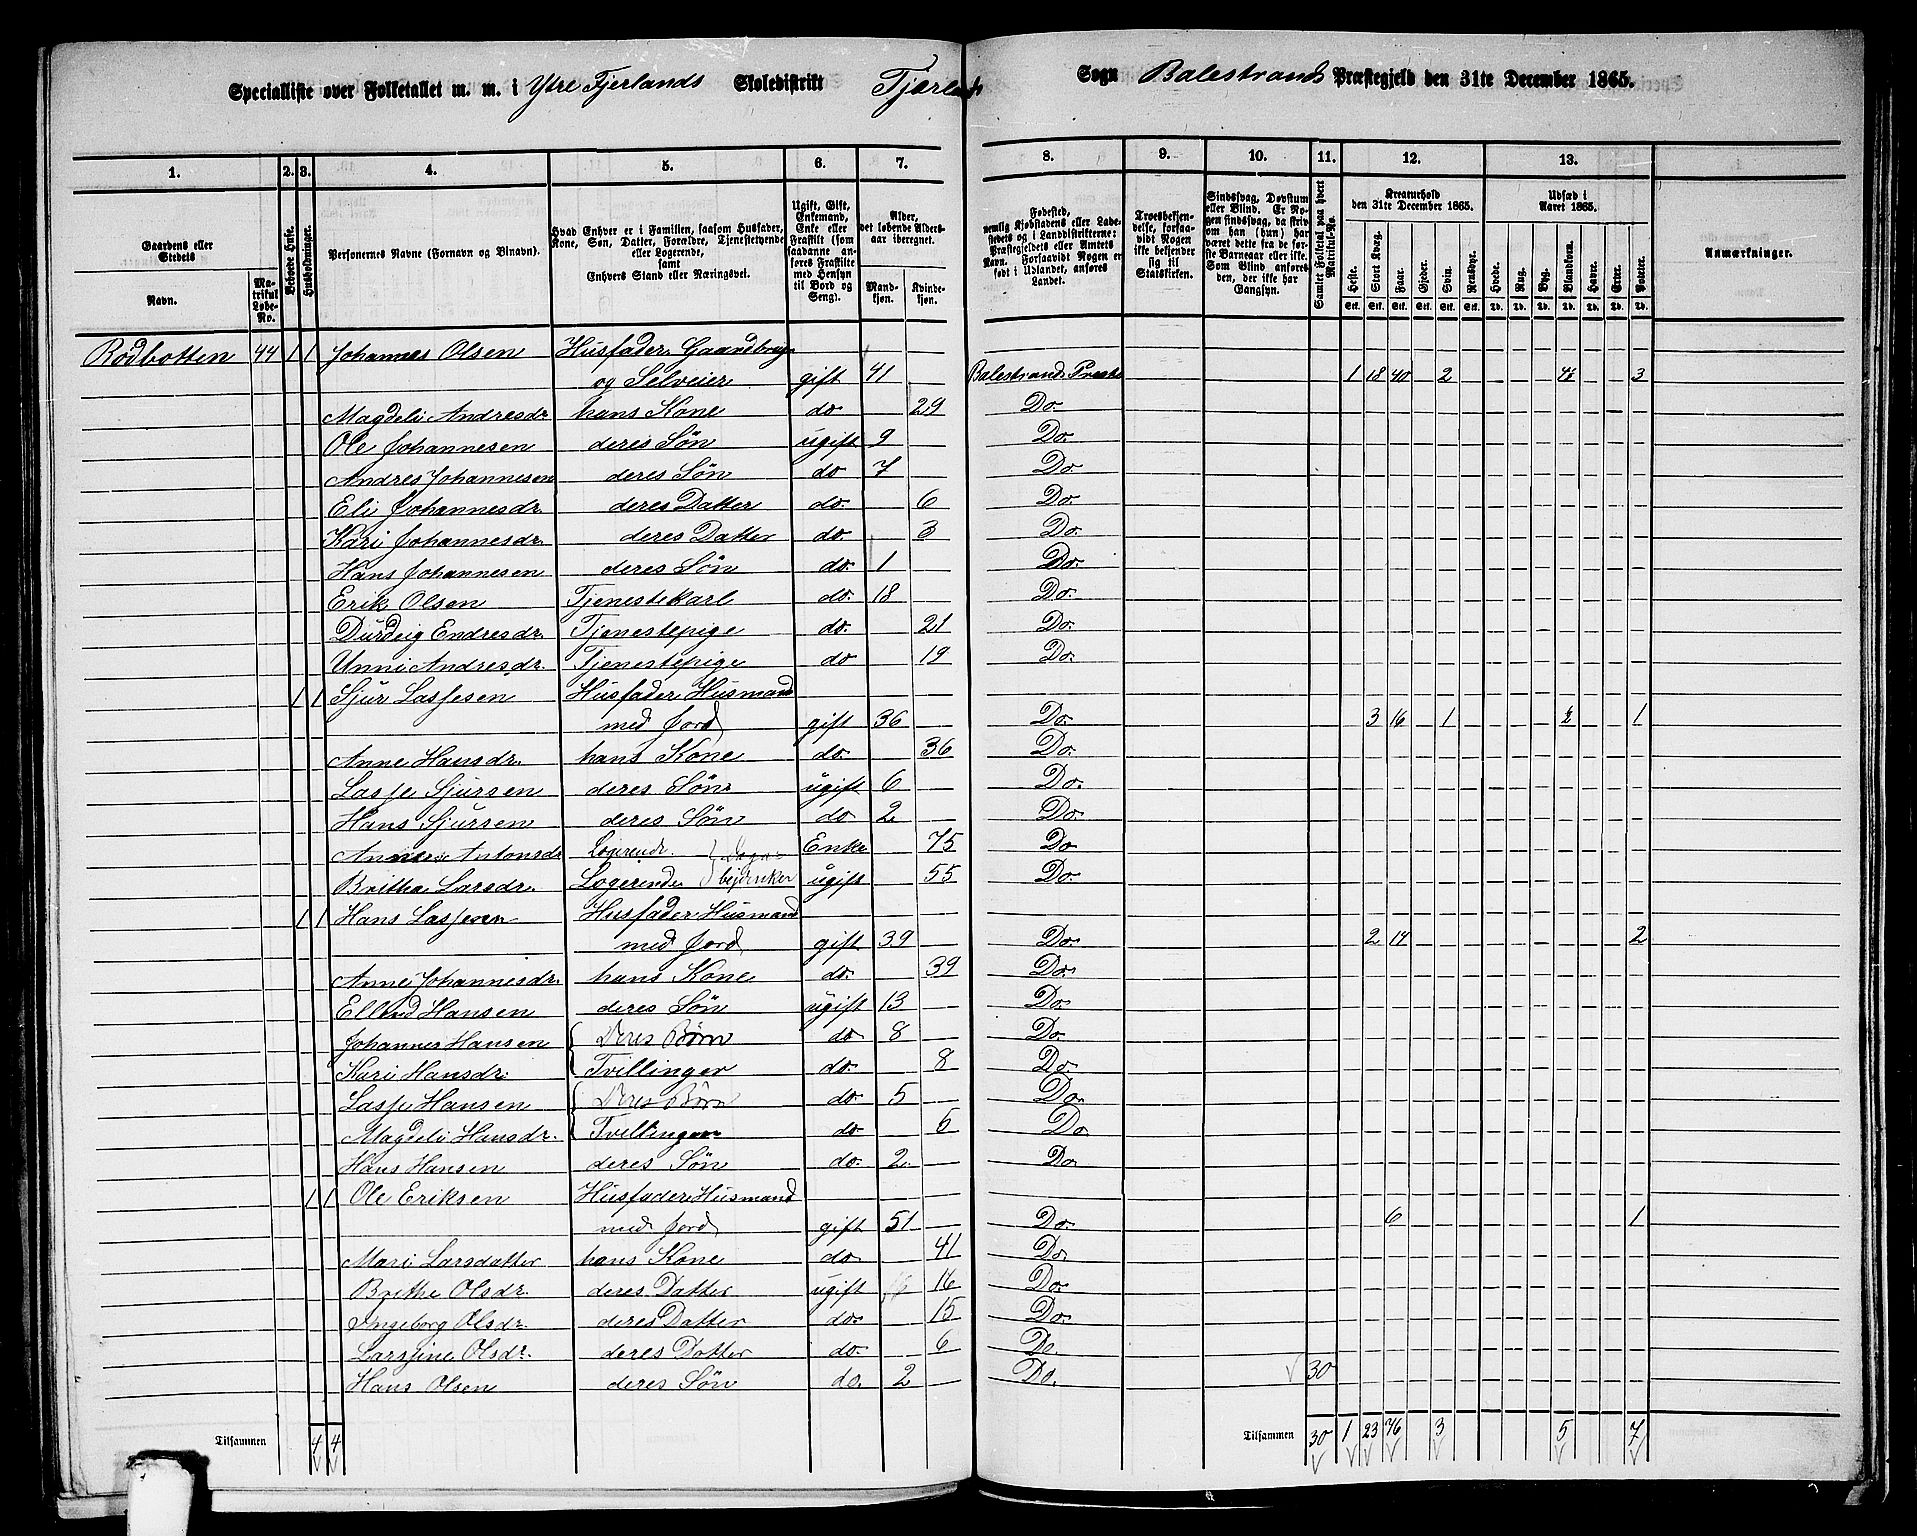 Specialliste over Folketallet m. m. i Ytre Fjerlands Skoledistrikt Fjærlands Sogn Balestrands Præstegjeld den 31te December 1865.
1. 2. 3. 4. 5. 6. 7. 8. 9. 10. 11. 12. 13.
Gaardens eller Stedets Navn.
Matrikul Løbe-No.
Beboede Huse.
Husholdninger.
Personernes Navne (Fornavn og Binavn).
Hvad Enhver er i Familien, saasom Husfader, Kone, Søn, Datter, Forældre, Tjenestetyende eller Logerende, samt Enhvers Stand eller Næringsvei.
Ugift, Gift, Enkemand, Enke eller Fraskilt (som saadanne anføres Fraskilte med Hensyn til Bord og Seng).
Alder, det løbende Aldersaar iberegnet.
Mandkjøn. Kvindekjøn.
Fødested, nemlig Kjøbstadens eller Ladestedets og i Landdistrikterne: Præstegjeldets eller Amtets Navn. Forsaavidt Nogen er født i Udlandet, anføres Landet.
Troesbekjendelse, forsaavidt Nogen ikke bekjender sig til Statskirken.
Sindssvag, Døvstum eller Blind. Er Nogen sindssvag, da skrives om han (hun) har været dette fra de første Barneaar eller ikke. Som Blind anføres den, der ikke har Gangsyn.
Samlet Folketal paa hvert Matrikul-No.
Kreaturhold den 31te December 1865.
Heste. Stort Kvæg. Faar. Gjeder. Svin. Rensdyr.
Udsæd i Aaret 1865.
Hvede. Rug. Byg. Blandkorn. Havre. Erter. Poteter.
Stk. Stk. Stk. Stk. Stk. Stk. Td. Td. Td. Td. Td. Td. Td.
Anmærkninger.
Rødbotten 44 1 1 Johannes Olsen Husfader Gaardbruger
og Selveier gift 41 Balestrands Præste 1 18 40 2 3
Magdeli Andresdr. hans Kone do 29 Do.
Ole Johannesen deres Søn ugift 9 Do.
Andres Johannesen deres Søn do 7 Do.
Eli Johannesdr. deres Datter do. 6 Do.
Kari Johannesdr. deres Datter do 3 Do.
Hans Johannesen deres Søn do. 1 Do.
Erik Olsen Tjenestekarl do. 18 Do.
Durdeig Endresdr. Tjenestepige do. 21 Do.
Unni Andresdr. Tjenestepige do 19 Do.
1 1 Sjur Lassesen Husfader Husmand
med Jord gift 36 Do. 3 16 1 ½ 1
Anne Hansdr. hans Kone do. 36 Do.
Lasse Sjursen deres Søn ugift 6 Do.
Hans Sjursen deres Søn do 2 Do.
Anne Antonsdr Logerende Enke 75 Do
Britha Larsdr. Logerende ugift 55 Do.
1 1 Hans Lassesen Husfader Husmand
med Jord gift 39 Do. 2 14 2
Anne Johannesdr. hans Kone do. 39 Do.
Ellend Hansen deres Søn ugift 13 Do.
Johannes Hansen Deres Børn do 8 Do.
Kari Hansdr. Tvillinger do. 8 Do.
Lasse Hansen Deres Børn do. 5 Do.
Magdeli Hansdr. Tvillinger do. 5 Do
Hans Hansen deres Søn do. 2 Do.
1 1 Ole Eriksen Husfader Husmand
med Jord gift 51 Do. 6 1
Mari Larsdatter hans Kone do 41 Do.
Brithe Olsdr. deres Datter ugift 16 Do.
Ingeborg Olsdr. deres Datter do. 15 Do.
Larssine Olsdr. deres Datter do. 6 Do.
Hans Olsen deres Søn do. 2 Do. 30
Tilsammen 4 4 Tilsammen 30 1 23 76 3 5 7